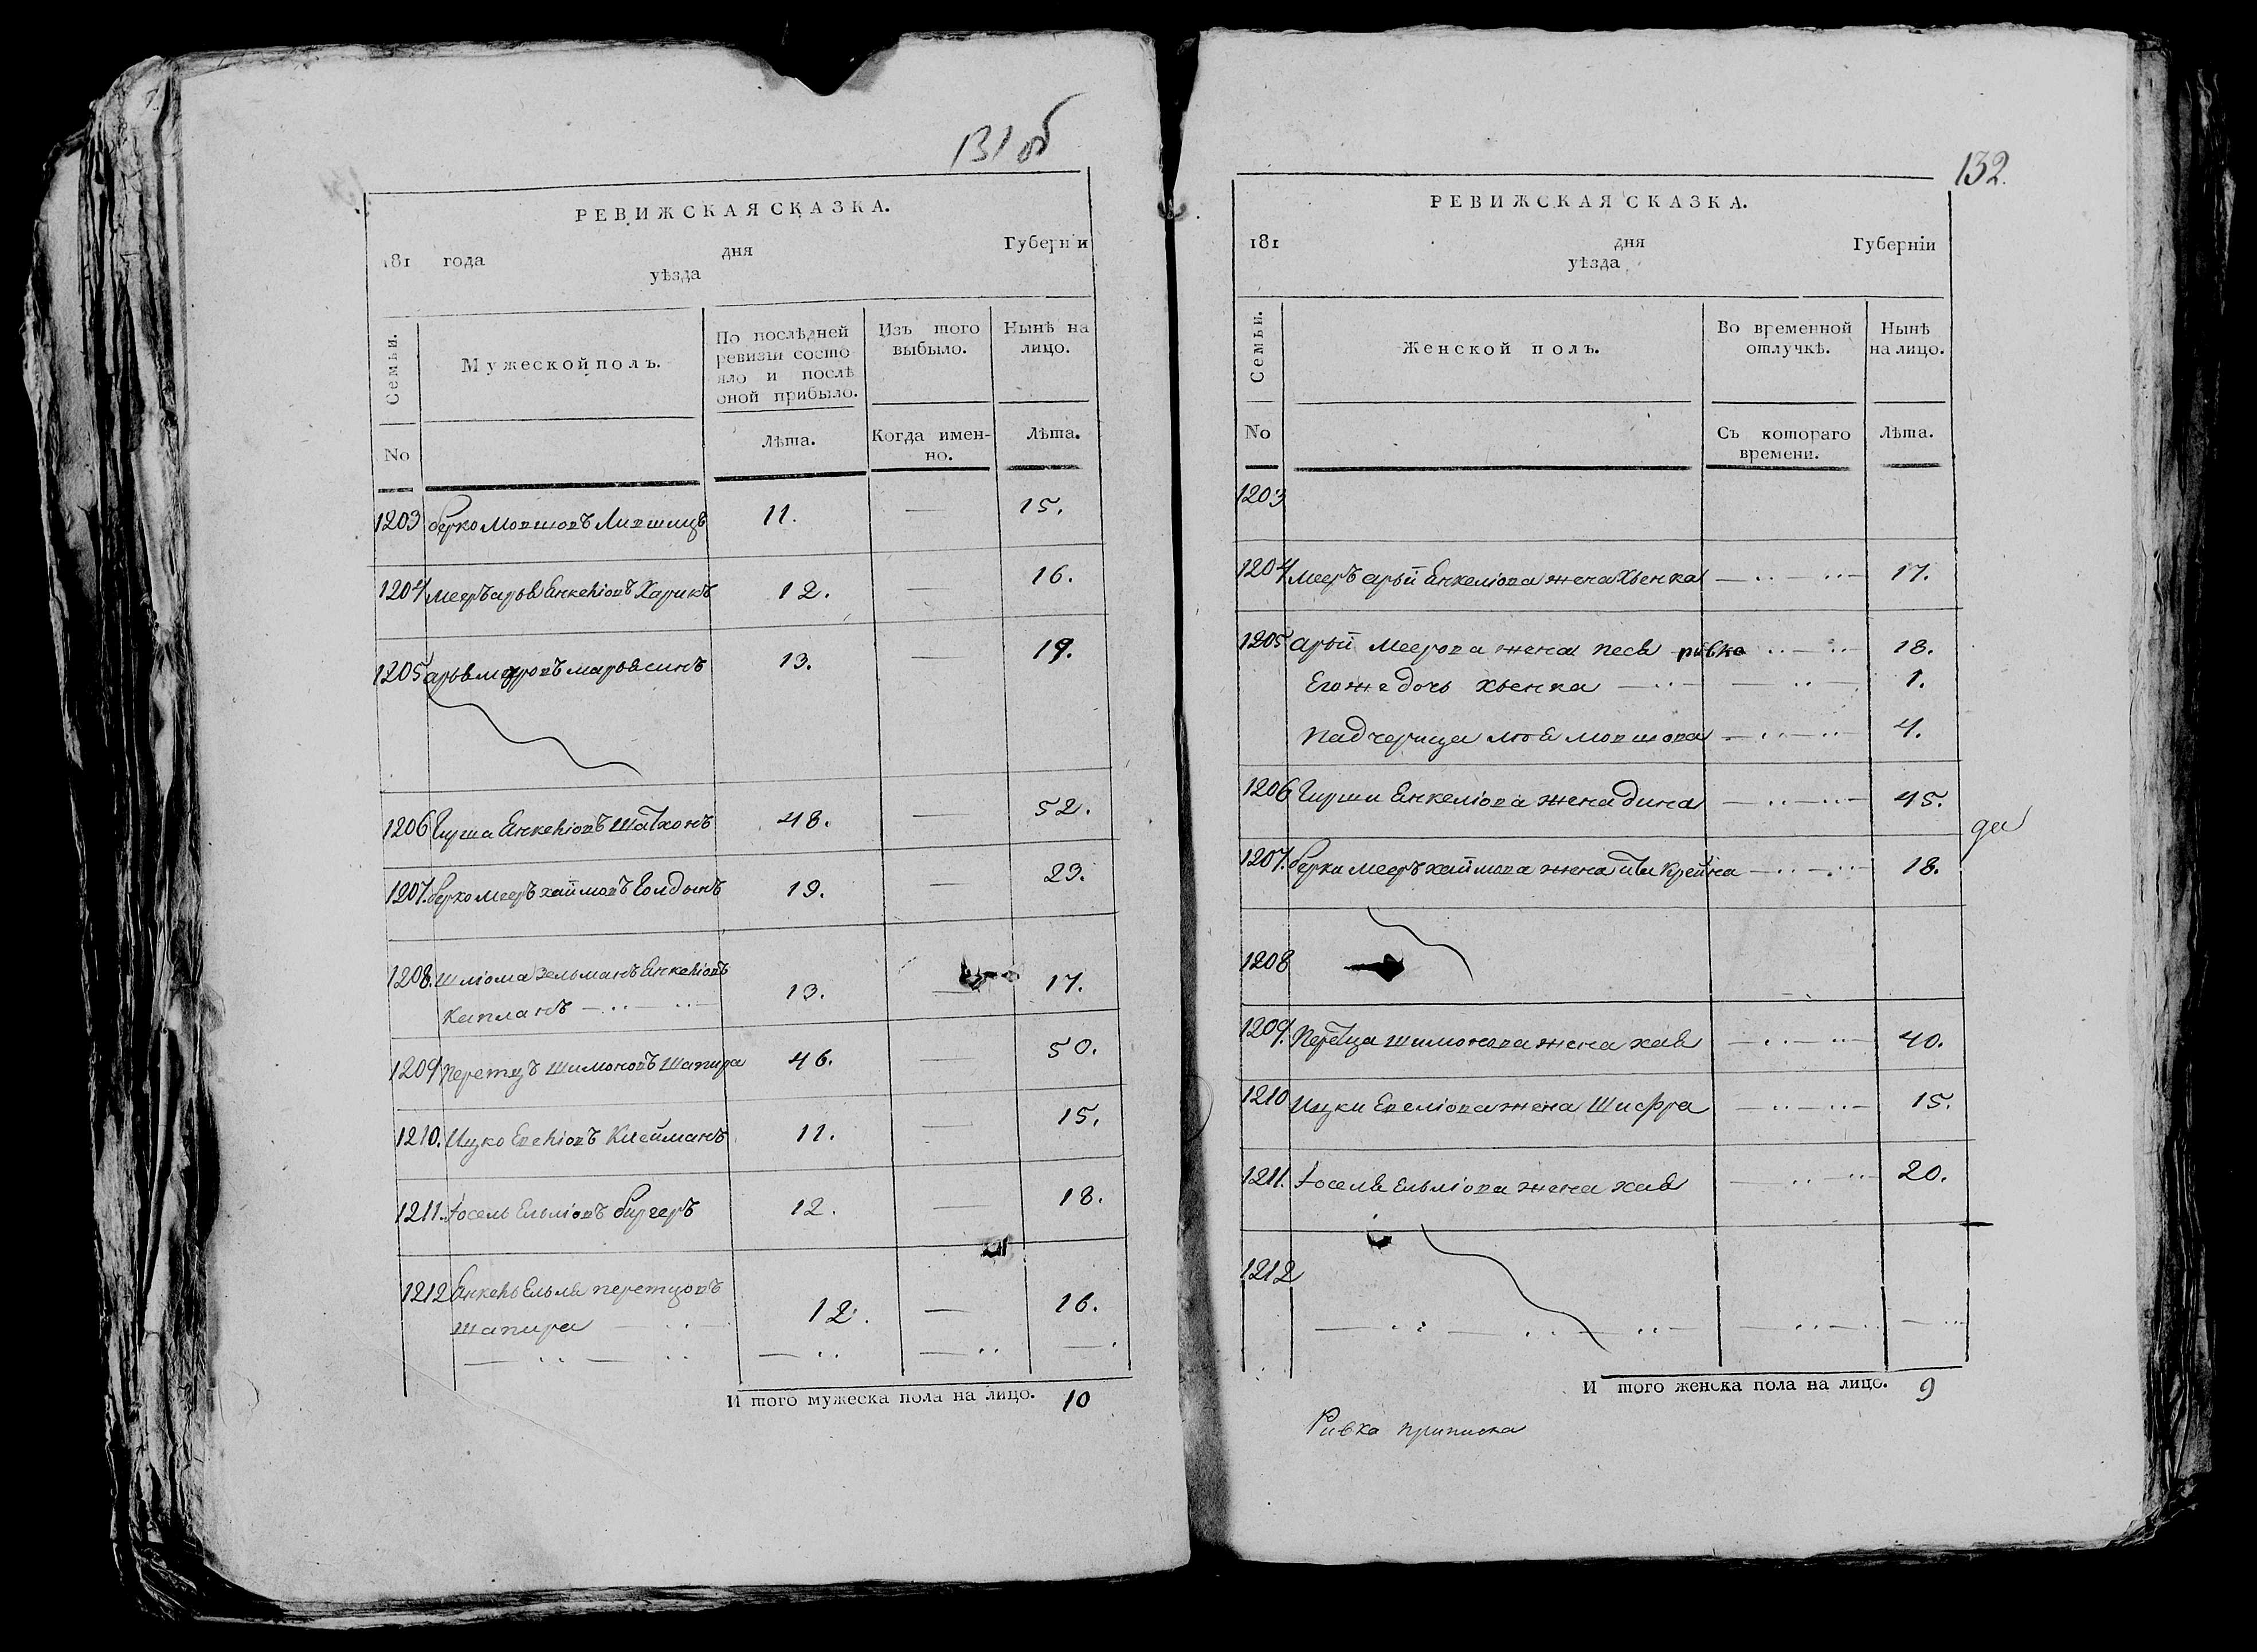 131 об
РЕВИЖСКАЯ СКАЗКА.
181 года дня Губернїи
уѣзда
Семьи.
Мужеской полъ.
По послѣдней
ревизїи состо
яло и послѣ
оной прибыло.
Изъ того
выбыло.
Нынѣ на
лицо.
No
Лѣта.
Когда имен-
но.
Лѣта.
1203 берко Мовшовъ Лившицъ 11. — 15.
1204 Мееръ арья Енкеліовъ Харикъ 12. — 16.
1205 арья мееровъ марьясинъ 13. — 19.
1206 Гирша Енкеліовъ Шатхонъ 48. — 52.
1207. берко мееръ хаймовъ Голдинъ 19. — 23.
1208. Шліома Зельманъ Енкеліовъ
Капланъ 13. — 17.
1209 Перетцъ Шимоновъ Шапира 46. — 50.
1210. Ицко Евеліовъ Клейманъ 11. — 15.
1211. Іосель Ельліовъ бургеръ 12. — 18.
1212 Енкель Ельля перетцовъ
Шапира 12. — 16.
И того мужеска пола на лицо. 10
132.
РЕВИЖСКАЯ СКАЗКА.
181 дня Губернїи
уѣзда
Семьи.
Женской полъ.
Во временной
отлучкѣ.
Нынѣ
на лицо.
No
Съ котораго
времени.
Лѣта.
1203
1204 Мееръ арьи Енкеліова жена Хьенка 17.
1205 арьи Меерова жена песя ривка 18.
Его же дочь хьенка 1.
падчерица мовшова 4.
1206 Гирши Енкеліова жена дина 45.
1207. берки мееръ хаймова жена Крейна 18.
1208
1209. Перетца шимонова жена хая 40.
1210 Ицки Евеліова жена Шифра 15.
1211. Іоселя Ельліова жена хая 20.
1212
И того женска пола на лицо. 9
Ривка приписка